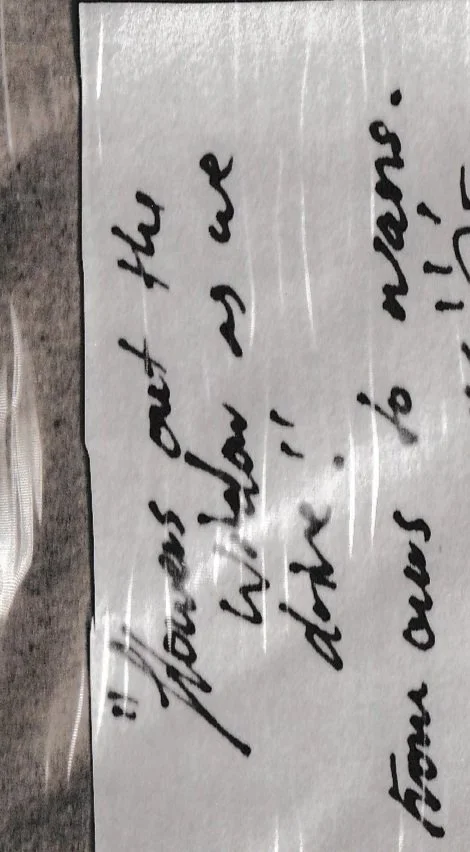 "flowers out the
Window as we
drive."
from to